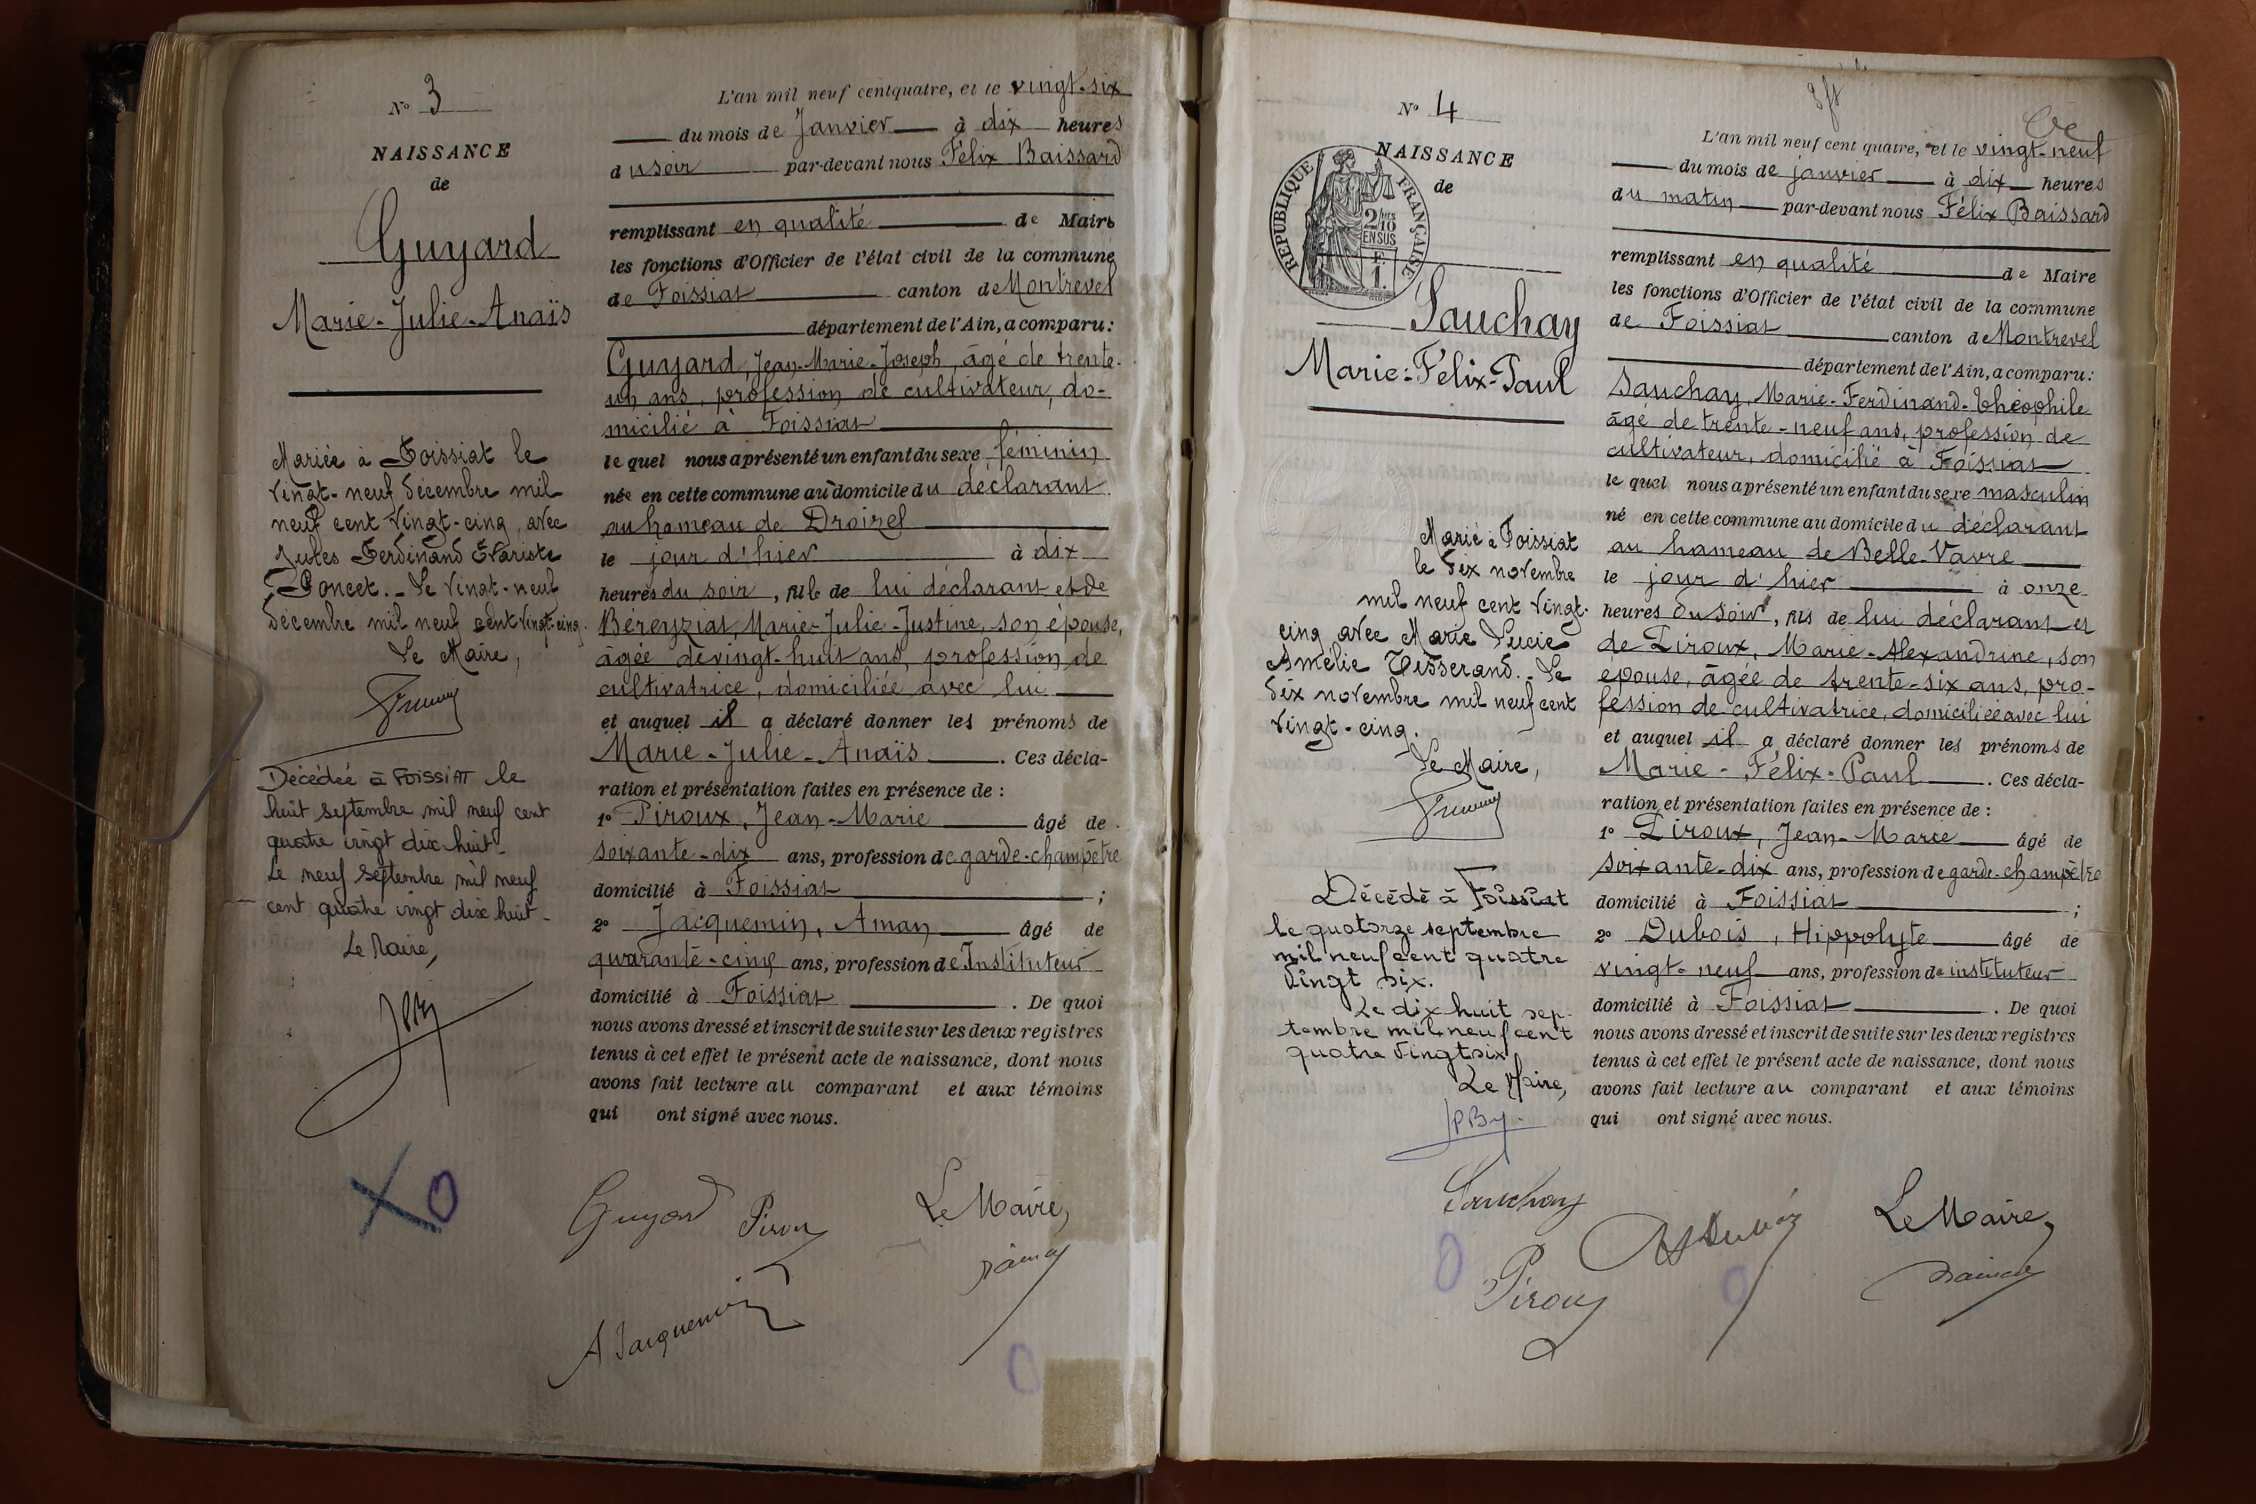 N° 3
NAISSANCE
de
Guyard
Marie-Julie-Anaïs
Mariée à Foissiat le
vingt-neuf décembre mil
neuf cent vingt-cinq, avec
Jules Ferdinand Evariste
Poncet. - Le vingt-neuf
décembre mil neuf cent vingt-cinq.
Le Maire,
Décédée à FOISSIAT le
huit septembre mil neuf cent
quatre vingt dix huit-
Le neuf septembre mil neuf
cent quatre vingt dix huit-
Le Maire,
L'an mil neuf cent quatre, et le vingt-six
du mois de Janvier à dix heures
du soir par-devant nous Félix Baissard
remplissant en qualité de Maire
les fonctions d'Officier de l'état civil de la commune
de Foissiat canton de Montrevel
département de l'Ain, a comparu:
Guyard, Jean-Marie-Joseph, âgé de trente-
un ans, profession de cultivateur, do-
micilié à Foissiat
lequel nous a présenté un enfant du sexe féminin
née en cette commune au domicile du déclarant
au hameau de Droizel
le jour d'hier à dix
heures du soir, fille de lui déclarant et de
Béreyziat, Marie-Julie-Justine, son épouse,
âgée de vingt-huit ans, profession de
cultivatrice, domiciliée avec lui
et auquel il a déclaré donner les prénoms de
Marie-Julie-Anaïs. Ces décla-
ration et présentation faites en présence de :
1° Piroux, Jean-Marie âgé de
soixante-dix ans, profession de garde-champêtre
domicilié à Foissiat ;
2° Jacquemin, Aman âgé de
quarante-cinq ans, profession de Instituteur
domicilié à Foissiat. De quoi
nous avons dressé et inscrit de suite sur les deux registres
tenus à cet effet le présent acte de naissance, dont nous
avons fait lecture au comparant et aux témoins
qui ont signé avec nous.
Guyard Piroux Le Maire,
A Jacquemin
N° 4
NAISSANCE
de
RÉPUBLIQUE FRANÇAISE
2/10
EN SUS
Sauchay
Marie-Félix-Paul
Marié à Foissiat
le dix novembre
mil neuf cent vingt-
cinq avec Marie Lucie
Amélie Tisserand. - Le
dix novembre mil neuf cent
vingt-cinq.
Le Maire,
Décédé à Foissiat
le quatorze septembre
mil neuf cent quatre
vingt six.
Le dix huit sep-
tembre mil neuf cent
quatre vingt six
Le Maire,
L'an mil neuf cent quatre, et le vingt-neuf
du mois de janvier à dix heures
du matin par-devant nous Félix Baissard
remplissant en qualité de Maire
les fonctions d'Officier de l'état civil de la commune
de Foissiat canton de Montrevel
département de l'Ain, a comparu:
Sauchay, Marie-Ferdinand-Théophile
âgé de trente-neuf ans, profession de
cultivateur, domicilié à Foissiat
lequel nous a présenté un enfant du sexe masculin
né en cette commune au domicile du déclarant
au hameau de Belle-Vavre
le jour d'hier à onze
heures du soir, fils de lui déclarant et
de Piroux, Marie-Alexandrine, son
épouse, âgée de trente-six ans, pro-
fession de cultivatrice, domiciliée avec lui
et auquel il a déclaré donner les prénoms de
Marie-Félix-Paul. Ces décla-
ration et présentation faites en présence de :
1° Piroux, Jean-Marie âgé de
soixante-dix ans, profession de garde-champêtre
domicilié à Foissiat ;
2° Dubois, Hippolyte âgé de
vingt-neuf ans, profession de instituteur
domicilié à Foissiat. De quoi
nous avons dressé et inscrit de suite sur les deux registres
tenus à cet effet le présent acte de naissance, dont nous
avons fait lecture au comparant et aux témoins
qui ont signé avec nous.
Sauchay Le Maire,
Piroux